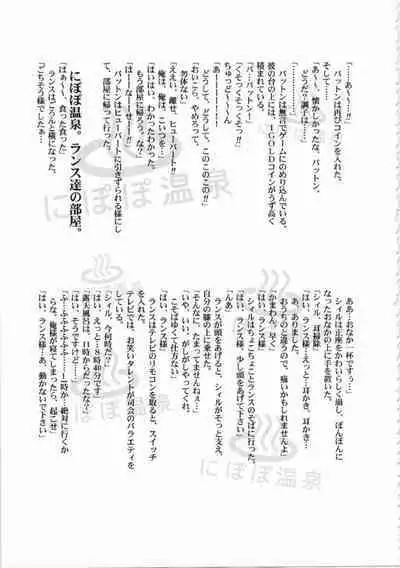 「……あ～～～!!」
そして再びコインを入れた。
「あ～～、懐かしかったな、バットン。
……だう？調子は……」
バットンは無言でゲームにのめり込んでいる。
彼の台の上には、1GOLDコインがうず高く
積まれている。
「バ…バットン！
くそっくそっくそっっっ…！
ちゅっどーーーん
「あーーーーーーー!!
どうして、どうして、このこのこの!!」
「おいこら、やめろって、
勿体ない」
「ええい、離せ、ヒューバート!!
俺は、俺は、こいつを…」
「はいはい、わかったわかった。
もう部屋に帰ろうな？」
「はーーなーーせーーー!!」
バットンはヒューバートに引きずられる様にし
て、部屋に帰って行った。
にぽぽ温泉。ランス達の部屋。
「はぁ～、食った食った」
ランスはごろんと横になった。
「ごちそう様でしたぁ…
ああ…おなか一杯ですぅ…」
シィルは正座をかわいらしく崩し、ぽんぽんに
なったおなかの上に手を置いた。
「シィル、耳掃除」
「はい、ランス様…えっと…耳かき、耳かき…
あ、ありました。
おうちのと違うので、痛いかもしれませんよ」
「かまわん、早く」
「はい、ランス様」
シィルはちょこちょことランスのそばに行った。
「はい、ランス様、少し頭をあげて下さい」
「んあ」
ランスが頭をあげると、シィルがそっと
自分の膝の上に来せた。
「そんなに、たまってませんねぇ…」
「いや、いい、がしがしやってくれ。
こそばゆくて仕方ない」
ランスはテレビのリモコンを取ると、スイッチ
を入れた。
テレビでは、お笑いタレントが司会のバラエティを
している。
「シィル、今何時だ？」
「はい、えっと…8時40分です」
「露天風呂は、11時からだったな？」
「はい、そうですけど…」
「ふーふふふふふ…1二時か…絶対に行くか
らな。俺様が寝てしまったら、起こせ」
「はい、ランス様…あ、動かないで下さい」
にぽぽ温泉
にぽぽ温泉